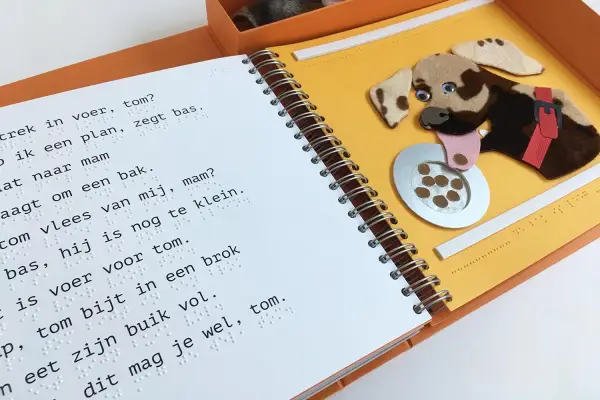 trek in voer, tom?
ik een plan, zegt bas.
at naar mam
aagt om een bak.
tom vlees van mij, mam?
bas, hij is nog te klein.
is voer voor tom.
p, tom bijt in een brok
n eet zijn buik vol.
dit mag je wel, tom.